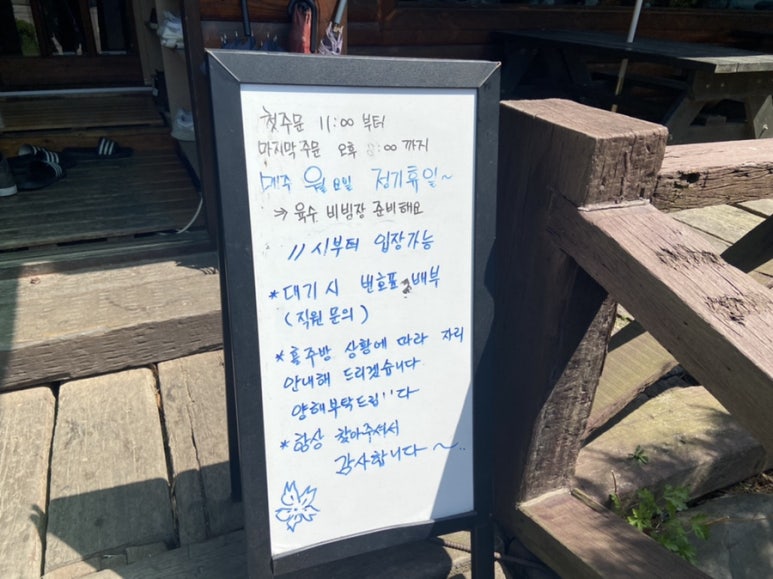 첫주문 11:00 부터
마지막 주문 오후 :00 까지
매주 월요일 정기휴일~
⇒ 육수 비빔장 준비해요
11시부터 입장가능
* 대기시 번호표 배부
(직원문의)
* 홀주방 상황에 따라 자리
안내해 드리겠습니다
양해부탁드립니다
* 항상 찾아주셔서
감사합니다~..